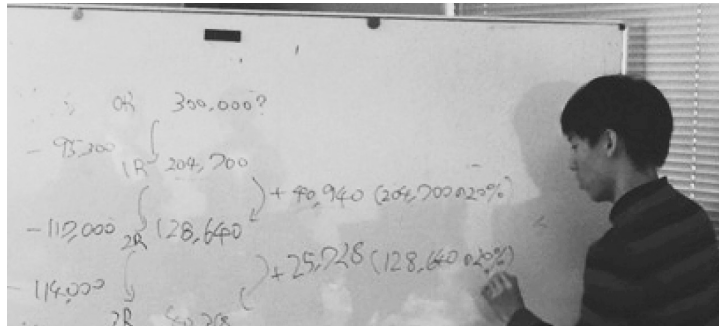 0R 300,000?
- 95,300
1R 204,700
+ 40,940 (204,700の20%)
-117,000 2R 128,640
+25,728 (128,640の20%)
-114,000
3R 40,368